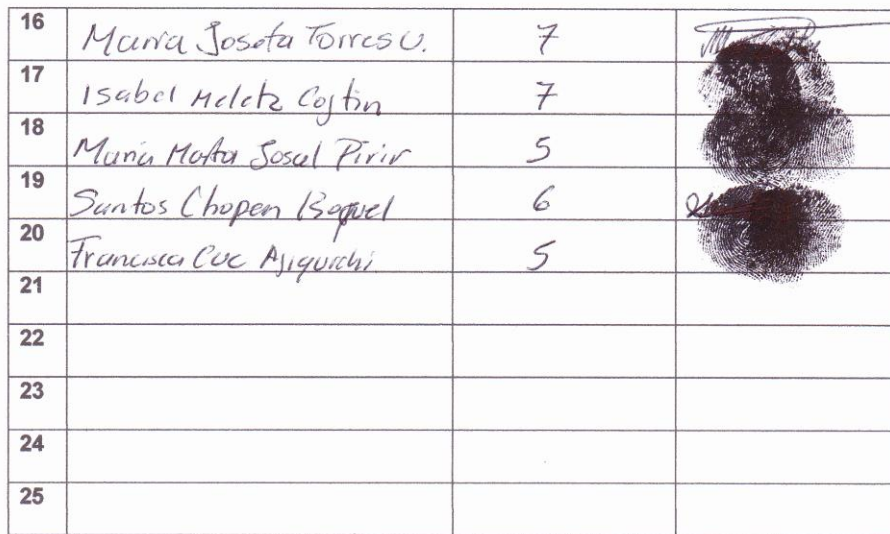 16 Maria Josefa Torres U. 7
17 Isabel Meletz Cojtin 7
18 Maria Marta Josal Pirir 5
19 Santos Chopen Boquel 6
20 Francisca Cuc Ajiquichi 5
21
22
23
24
25